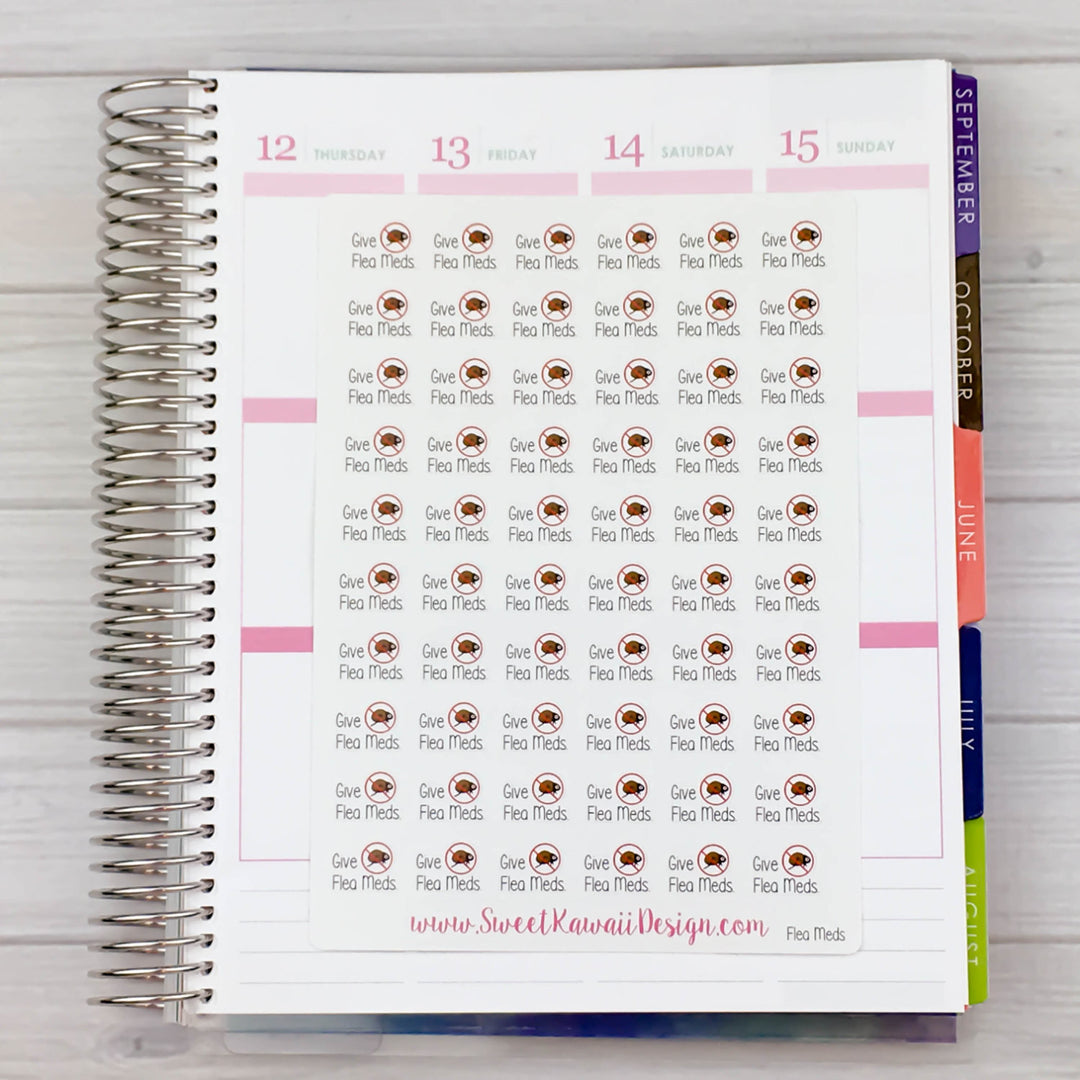 12 THURSDAY 13 FRIDAY 14 SATURDAY 15 SUNDAY
Give Give Give Give Give Give
Flea Meds. Flea Meds. Flea Meds. Flea Meds. Flea Meds. Flea Meds.
Give Give Give Give Give Give
Flea Meds. Flea Meds. Flea Meds. Flea Meds. Flea Meds. Flea Meds.
Give Give Give Give Give Give
Flea Meds. Flea Meds. Flea Meds. Flea Meds. Flea Meds. Flea Meds.
Give Give Give Give Give Give
Flea Meds. Flea Meds. Flea Meds. Flea Meds. Flea Meds. Flea Meds.
Give Give Give Give Give Give
Flea Meds. Flea Meds. Flea Meds. Flea Meds. Flea Meds. Flea Meds.
Give Give Give Give Give Give
Flea Meds. Flea Meds. Flea Meds. Flea Meds. Flea Meds. Flea Meds.
Give Give Give Give Give Give
Flea Meds. Flea Meds. Flea Meds. Flea Meds. Flea Meds. Flea Meds.
Give Give Give Give Give Give
Flea Meds. Flea Meds. Flea Meds. Flea Meds. Flea Meds. Flea Meds.
Give Give Give Give Give Give
Flea Meds. Flea Meds. Flea Meds. Flea Meds. Flea Meds. Flea Meds.
Give Give Give Give Give Give
Flea Meds. Flea Meds. Flea Meds. Flea Meds. Flea Meds. Flea Meds.
www.SweetKawaiiDesign.com
Flea Meds
SEPTEMBER
OCTOBER
JUNE
JULY
AUGUST